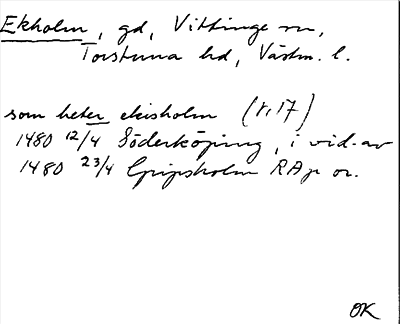 Ekholm, gd, Vittinge sn,
Torstuna hd, Västm. l.
som heter ekisholm (r, 17)
1480 12/4 Söderköping, i vid. av
1480 23/4 Gripsholm RAp or.
OK